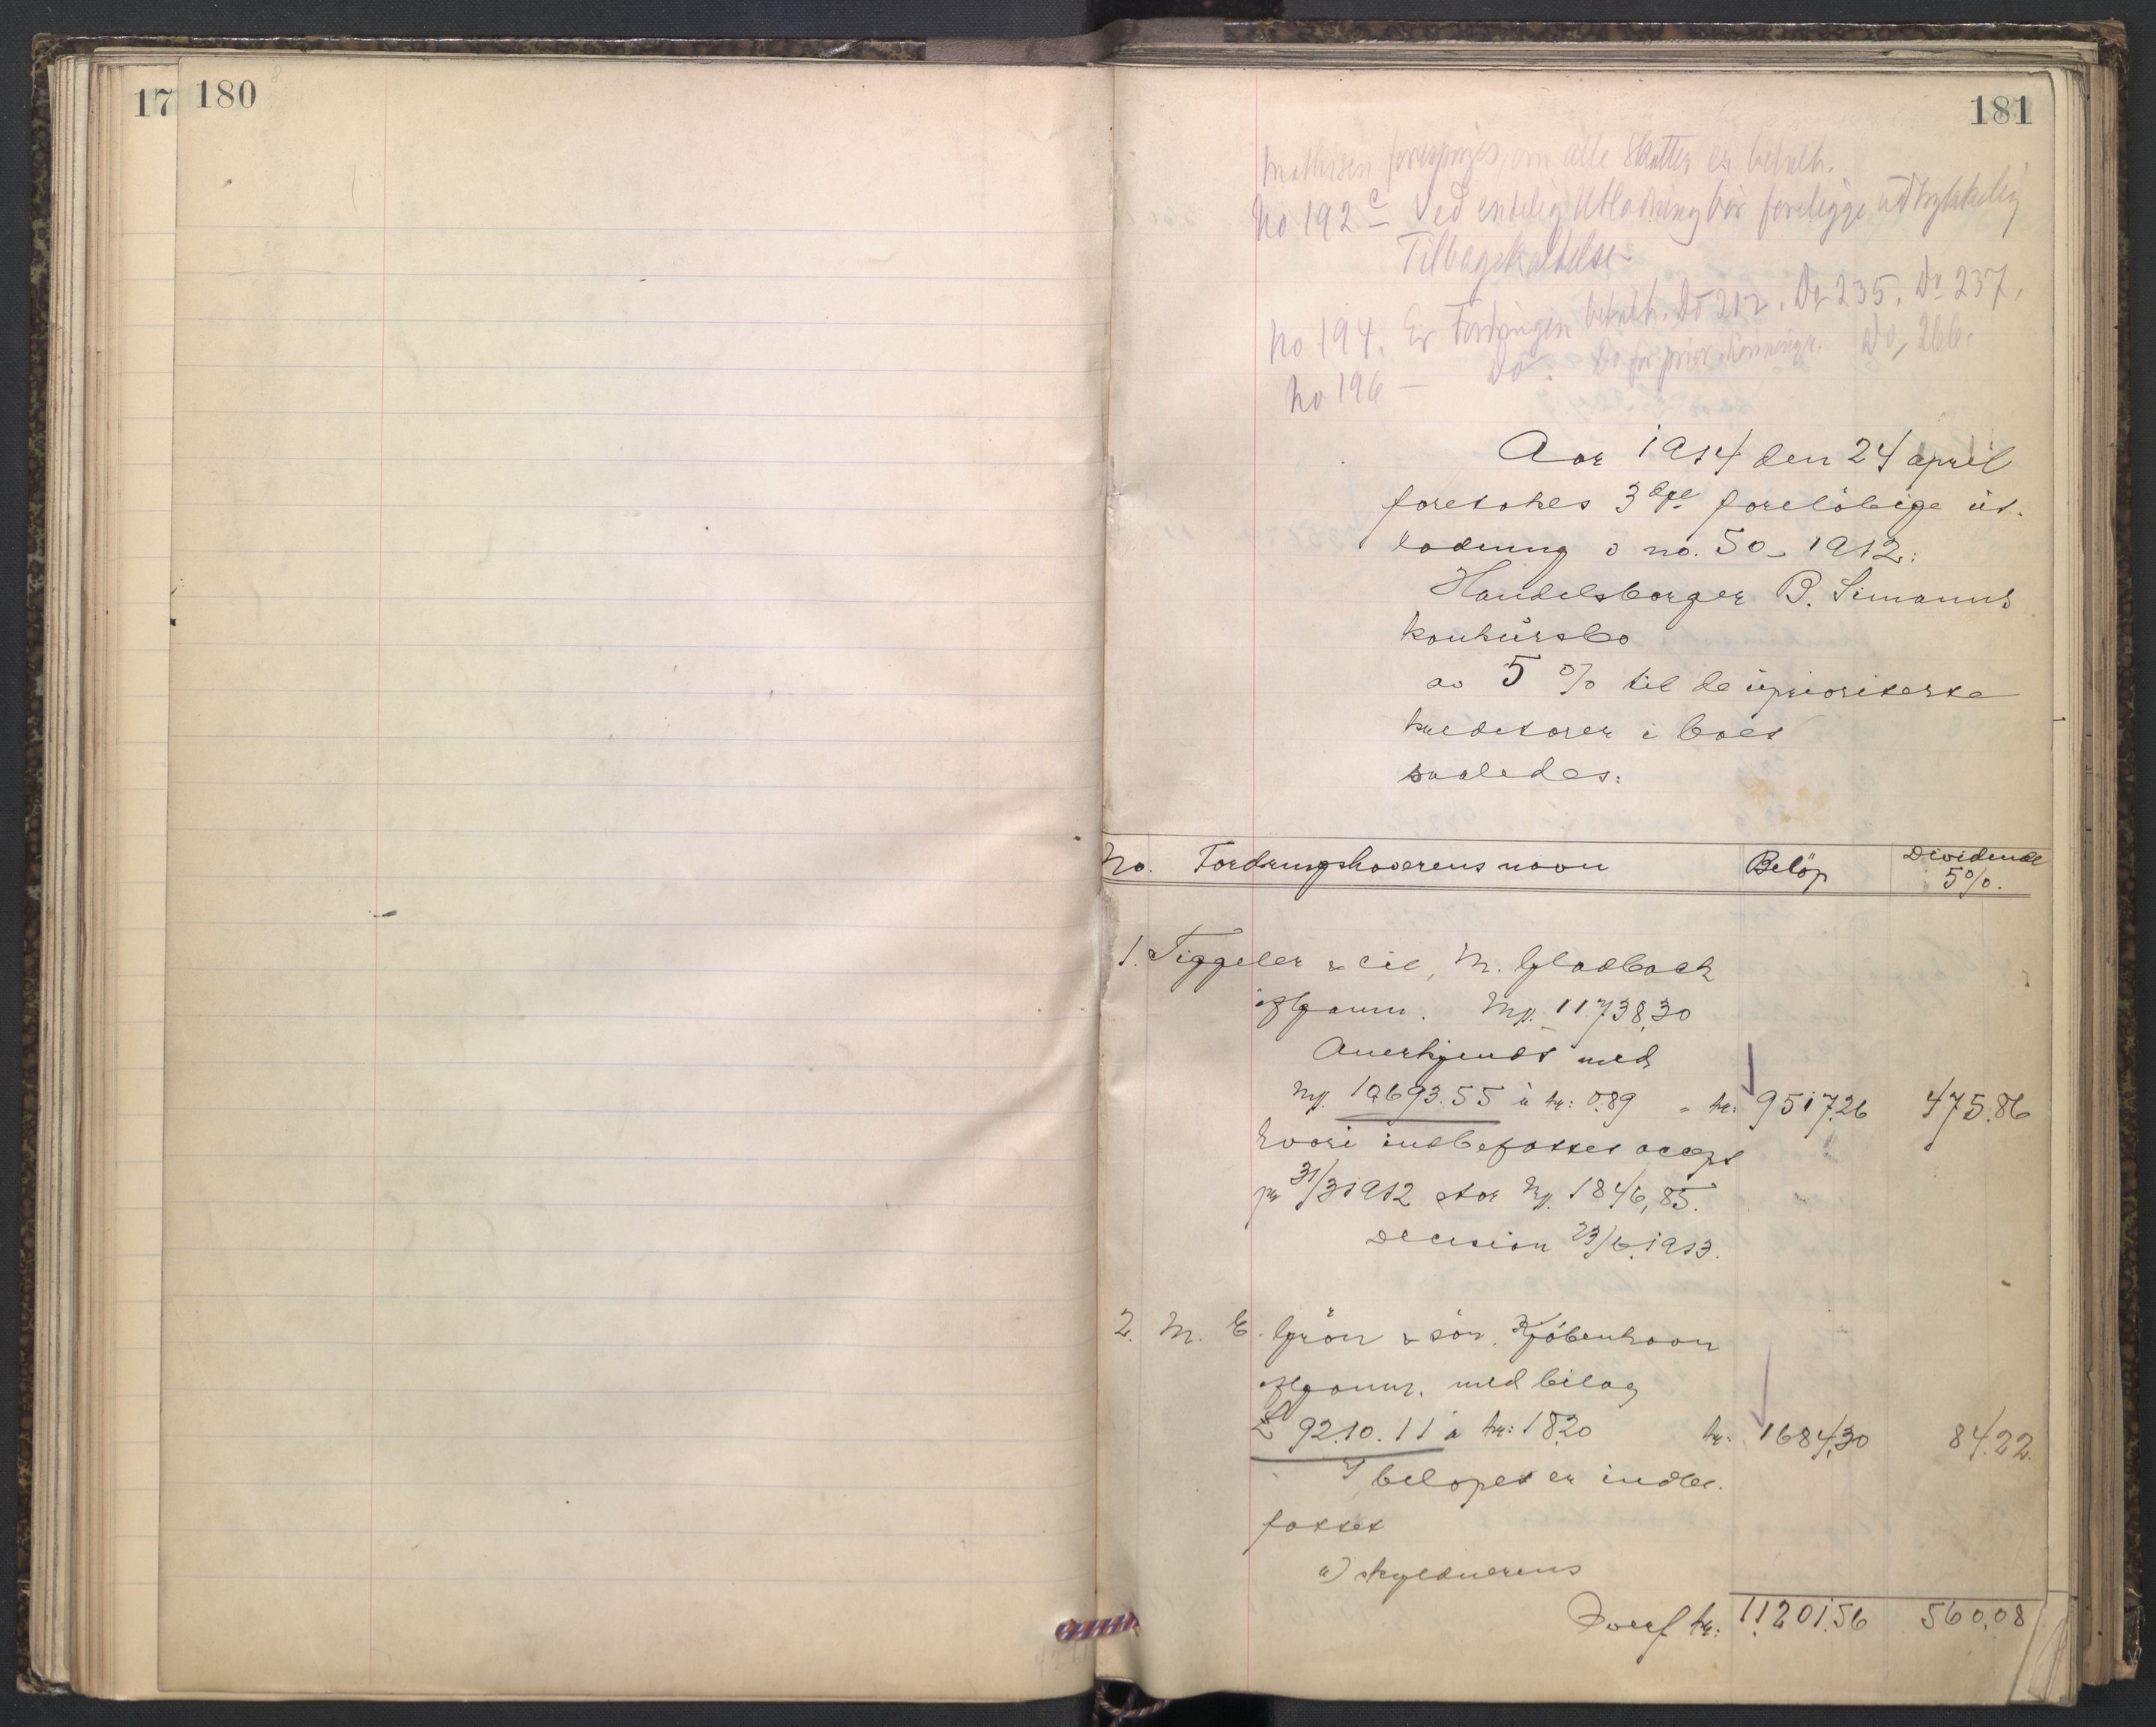 17 180
181
Mathisen forespørges, om alle Skatter er betalt.
No 192 c Ved endelig Utlodning bør foreligge udtrykkelig
Tilbagekaldelse.
No 194. Er Fordringen betalt. Do 212. Do 235. Do 237.
No 196 — Do. Do for prior. Do, 266.
Aar 1914 den 24 april
foretokes 3dje forelöbige ut-
lodning i no. 50 - 1912:
Handelsborger B. Simanns
konkursbo
av 5 % til de uprioriterte
kreditorer i boet
saaledes:
No. Fordringshaverens navn Belöp Dividende
5%.
1. Tiggeler & Cie, M. Gladbach
iflg anm. Mk. 11738,30
Anerkjendt med
Mk. 10693.55 à kr: 0.89 = kr: 9517.26 475.86
hvori indbefattet accept
pr 31/3 1912 stor Mk. 1846,85.
Decision 23/6.1913.
2. M. E. Grön & sön. Kjöbenhavn
iflg anm. med bilag
£ 92.10.11 à kr: 18.20 kr. 1684,30 84.22.
I belöpet er indbe-
fattet
a) skyldnerens
Överf kr: 11201.56 560,08